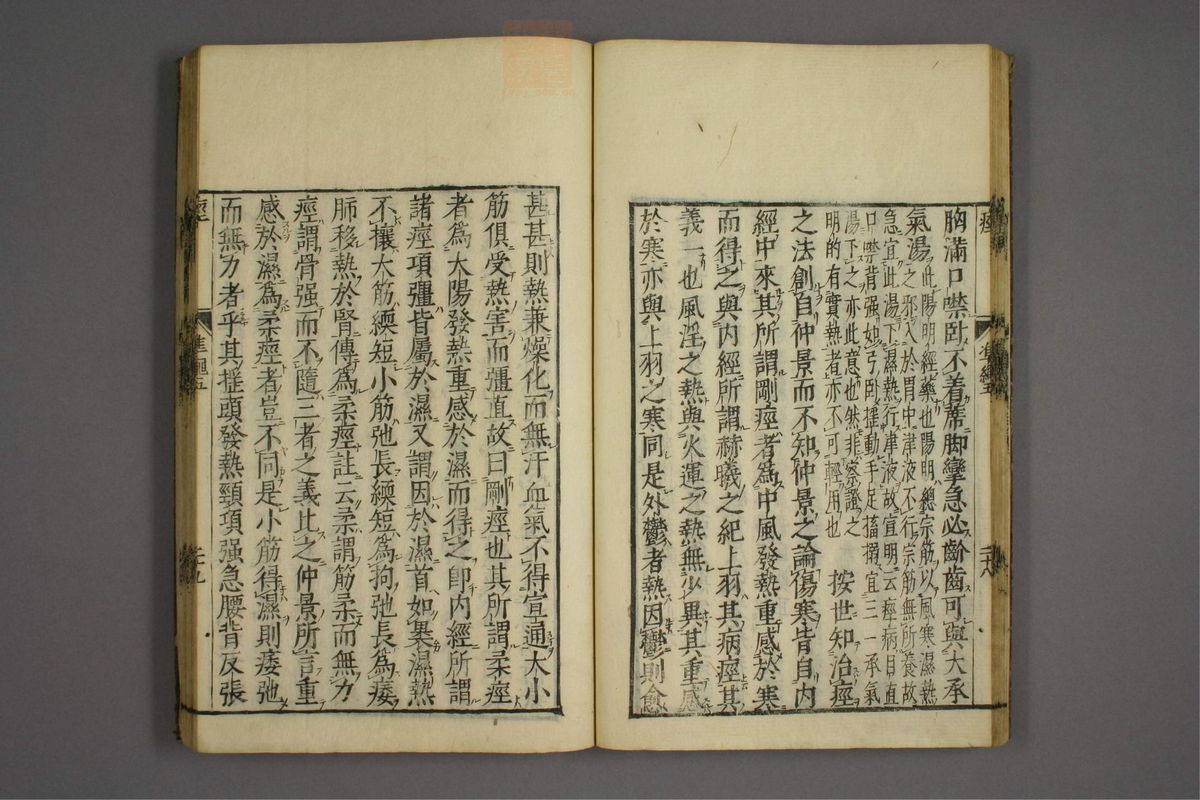 痙
胸滿口噤卧不着蓆脚攣急必齘齒可與大承
氣湯此陽明經藥也陽明總宗筋以風寒濕熱
之邪入於胃中津液不行宗筋無所養故
急宜此湯下濕熱行津液故宜明云痙病目直
口噤背强如弓卧摇動手足搐搦宜三一承氣
湯下之亦此意也然非察證之
明的有實熱者亦不可輕用也
按世知治痙
之法創自仲景而不知仲景之論傷寒皆自内
經中來其所謂剛痙者為中風發熱重感於寒
而得之與内經所謂赫曦之紀上羽其病痙其
義一也風淫之熱與火運之熱無少異其重感
於寒亦與上羽之寒同是外鬱者熱因鬱則愈
甚甚則熱兼燥化而無汗血氣不得宣通大小
筋俱受熱害而彊直故曰剛痙也其所謂柔痙
者為大陽發熱重感於濕而得之卽内經所謂
諸痙項彊皆屬於濕又謂因於濕首如裹濕熱
不攘大筋緛短小筋弛長緛短為拘弛長為痿
肺移熱於腎傳為柔痙註云柔謂筋柔而無力
痙謂骨强而不隨三者之義比之仲景所言重
感於濕為柔痙者豈不同是小筋得濕則痿弛
而無力者乎其摇頭發熱頸項强急腰背反張
痙